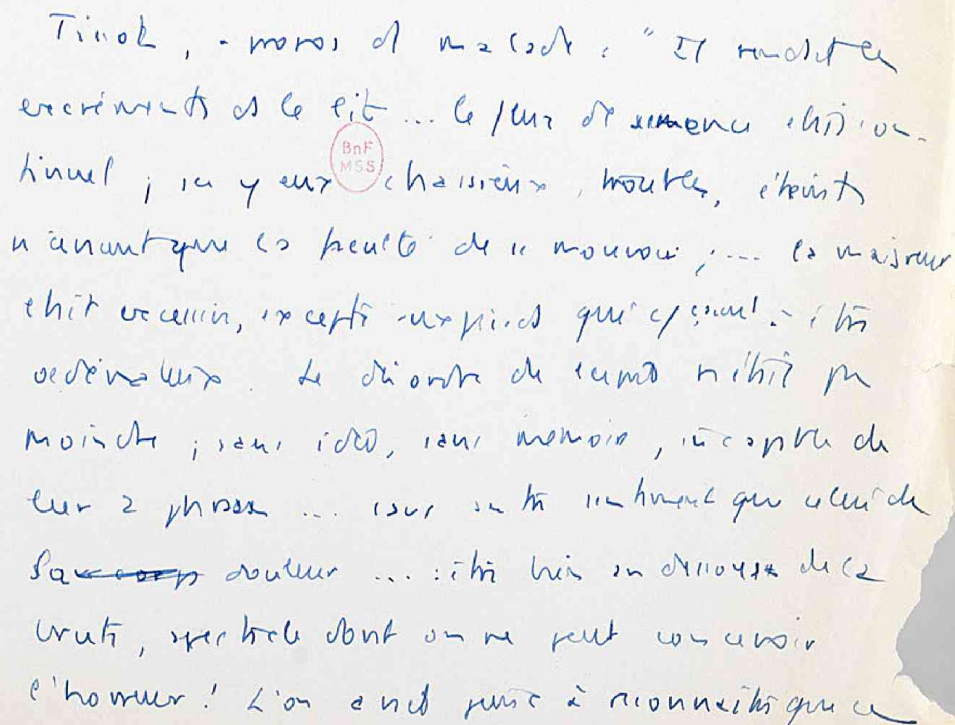 Tissot, à propos d'1 malade : " Il rendait les
excréments ds le lit ... le flux de semence était con-
tinuel ; ses yeux chassieux, troubles, éteints
BnF
MSS
n'avaient que la faculté de se mouvoir ; ... la maigreur
était extrême, excepté aux pieds qui commençaient à être
oedémateux. Le désordre de l'esprit n'était pas
moindre ; sans idées, sans mémoire, incapable de
lier 2 phrases ... sans autre sentiment que celui de
sa douleur ... être bien au dessous de la
brute, spectacle dont on ne peut concevoir
l'horreur ! L'on avait peine à reconnaître que ce